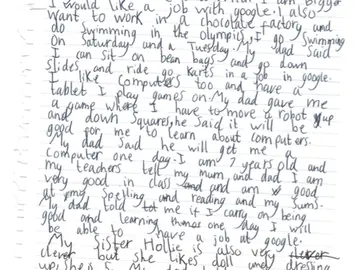 I would like a job with google. I also
want to work in a chocolate factory and
do swimming in the olympics. I go swimming
on Saturday and a Tuesday. My dad said
I can sit on bean bags and go down
slides and ride go karts in a job in google.
I like computers too and have a
tablet I play games on. My dad gave me
a game where I have to move a robot up
and down squares, he said it will be
good for me to learn about computers.
My dad said he will get me a
computer one day. I am 7 years old and
my teachers tell my mum and dad I am
very good in class and and am good
at my spelling and reading and my sums.
My dad told let me if I carry on being
good and learning things one day I will
be able to have a job at google.
My sister Hollie is also very clever
clever but she likes doll and dressing
up she is 5. My